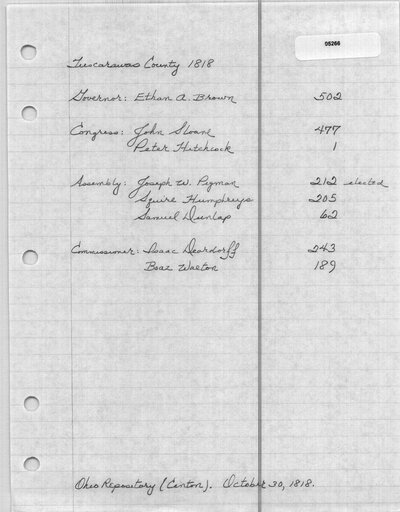 05266
Tuscarawas County 1818
Governor: Ethan A. Brown 502
Congress: John Sloane 477
Peter Hitchcock 1
Assembly: Joseph W. Pigman 212 elected
Squire Humphreys 205
Samuel Dunlap 62
Commissioner: Isaac Deardorff 243
Boaz Walton 189
Ohio Repository (Canton). October 30, 1818.